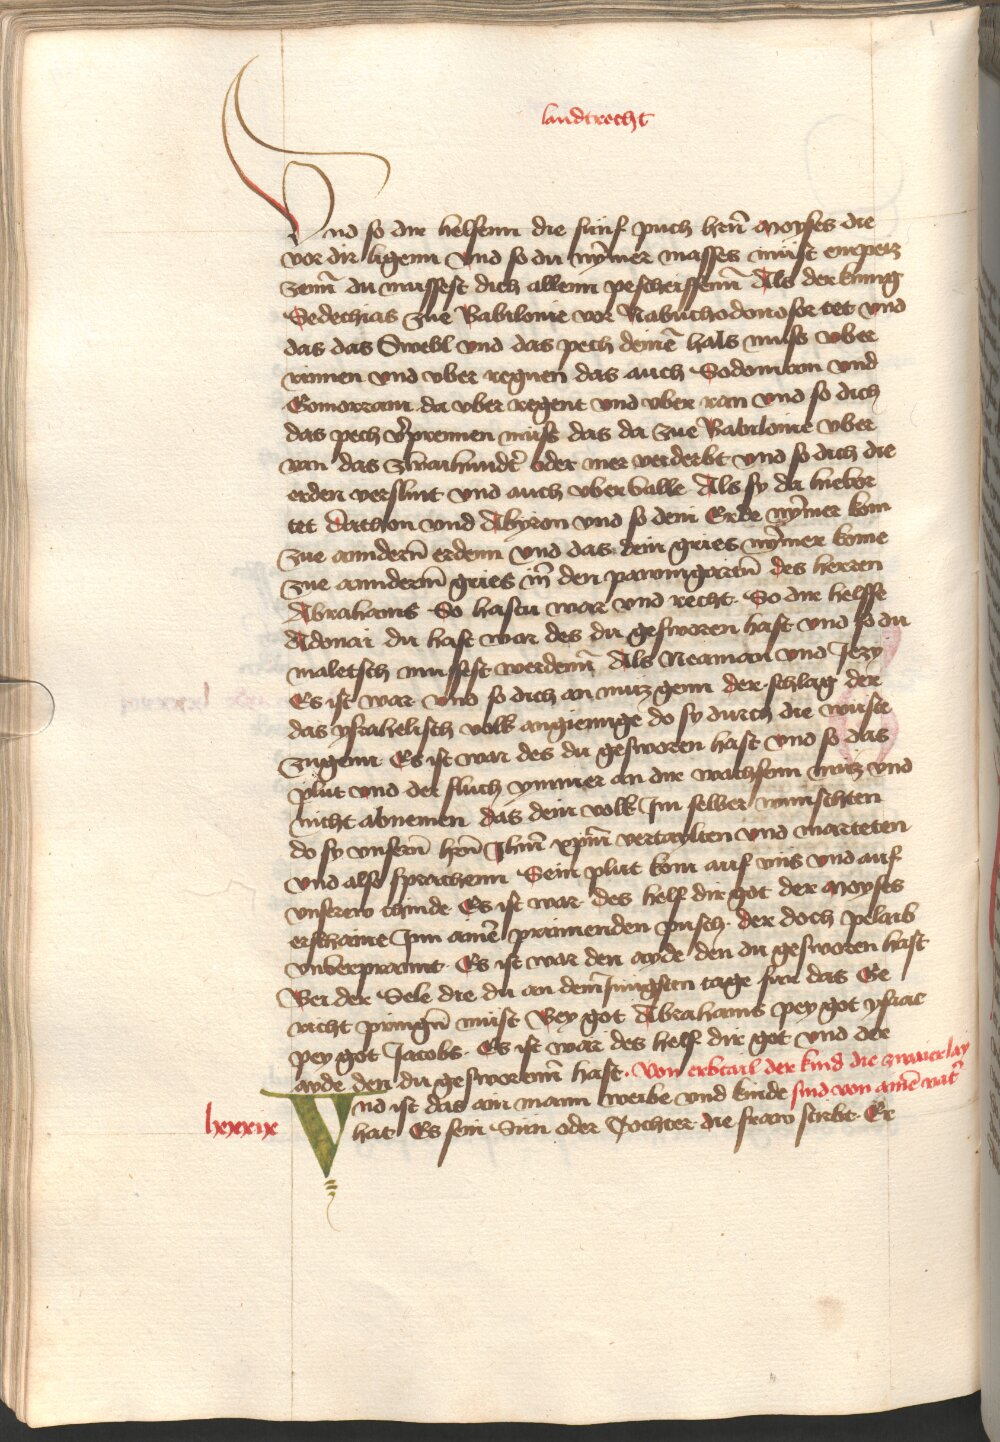 landtrecht
Vnd so dir helfenn die fünf puch hern̄ Moyses die
vor dir ligenn vnd so du nym̄er masses must enpeis
zenn̄ du mussest dich allenn pescheissenn̄ Als der kunig
Sedechias zue Babilonie vor Nabuchodonosor tet vnd
das das Swebl vnd das pech deinē hals muss vber
rinnen vnd vber regnen das auch Sodomam vnd
Gomorram da vber regent vnd vber ran vnd so dich
das pech vprennen müss das da zue Babilonie vber
ran das zwaihundt oder mer verderbt vnd so dich die
erden verslint vnd auch vber valle Als sy da hieuor
tet Dathon vnd Abyron vnd so dein Erde nym̄er kom
zue anndern̄ erdenn vnd das dein gries nym̄er kome
zue annderm̄ gries in̄ den pawmgartn̄ des herren
Abrahams So hastu war vnd recht. So dir helffe
Adonai du hast war des du gesworen hast vnd so du
maletsch mussest werdenn̄ Als Neaman vnd Jezy
Es ist war vnd so dich an muz genn der schlag der
das ysrahelisch volk angienge do sy durch die wuste
zugenn Es ist war des du gesworen hast vnd so das
plut vnd der fluch ymmer an dir wachsenn muz vnd
nicht abnemen das dein volk Jm selber wunschten
do sy vnsern̄ hern̄ Jhm̄ xpm̄ vertaylten vnd marteten
vnd also sprachenn Sein plut kom auf vns vnd auf
vnserew chinde Es ist war des helf dir got der Moyses
erschaine Jnn ainē prinnenden pusch. der doch pelaib
vnverprannt. Es ist war den ayde den du gesworen hast
Bei der Sele die du an dem Jungsten tage fur das Ge
richt pringn̄ must Bey got Abrahams pey got ysaac
pey got Jacobs. Es ist war des helf dir got vnd der
ayde den du gesworenn̄ hast. Von erbtail der kind die zwaier lay
sind von ainē vat̄
lxxxix
Vnd ist das ain mann weibe vnd kinde
hat Es sein Sün oder Tochter die fraw stirbt Er